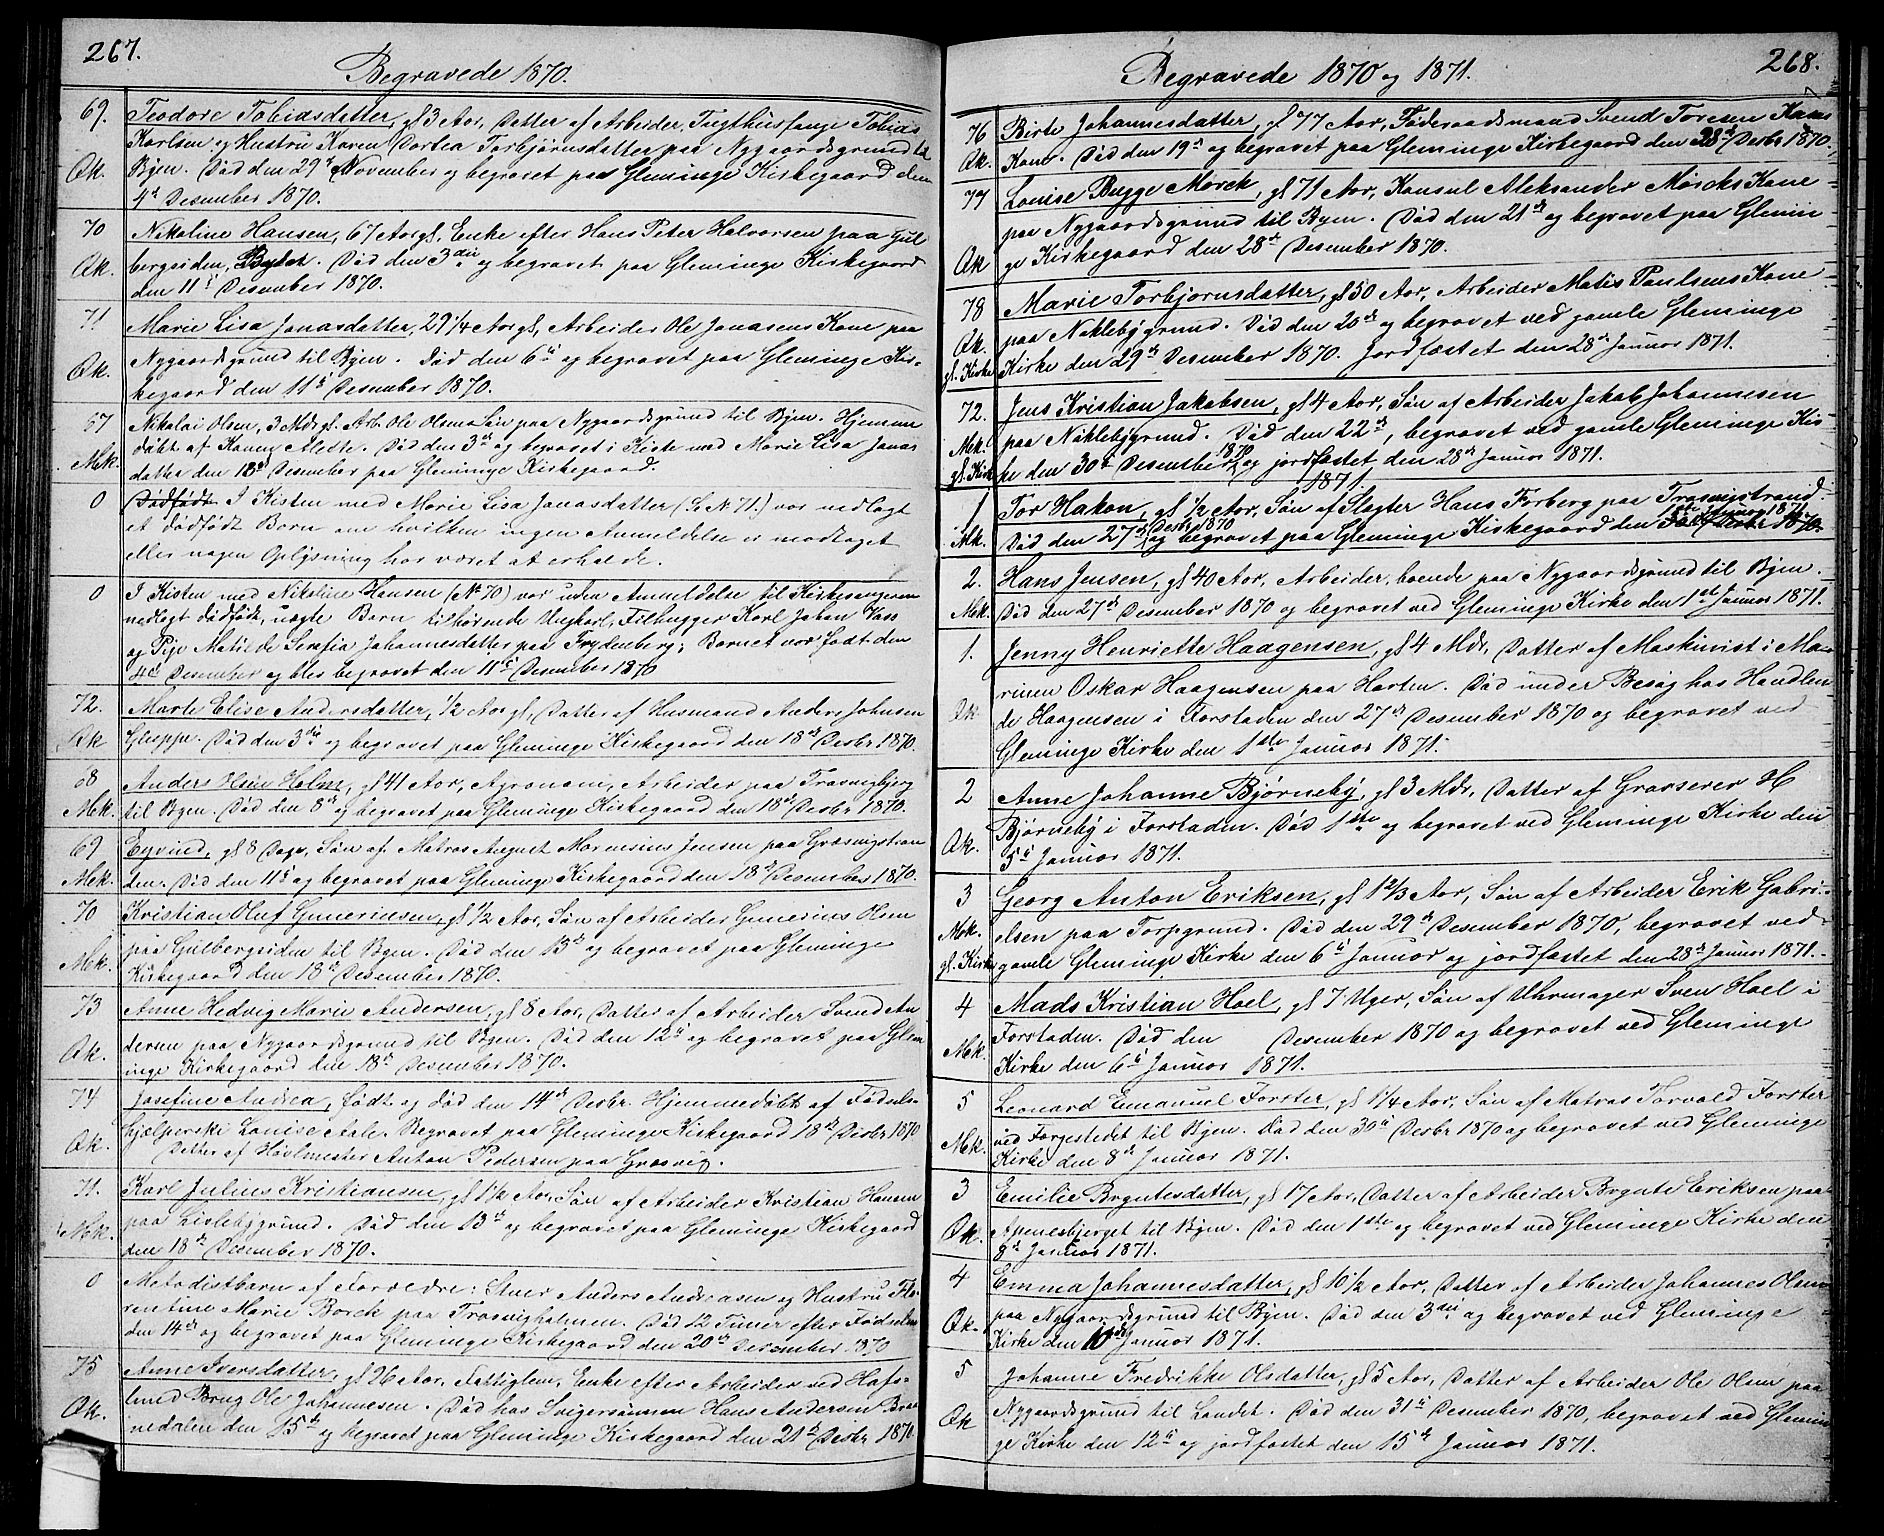 267.
Begravede 1870.
69. Teodore Tobiasdatter, gl 3 Aar, Datter af Arbeider, Tugthusfange Tobias
Karlsen og Hustru Karen Dortea Torbjørnsdatter paa Nygaardsgrund til
Qk. Byen. Død den 29de November og begravet paa Gleminge Kirkegaard den
4de Desember 1870.
70 Nikoline Hansen, 67 Aar gl, Enke efter Hans Peter Halvorsen paa Gul
Qk. bergsiden, Byen. Død den 3die og begravet paa Gleminge Kirkegaard
den 11te Desember 1870.
71 Marie Lisa Jonasdatter, 29 1/4 Aar gl, Arbeider Ole Jonasens Kone paa
Qk. Nygaardsgrund til Byen. Død den 6te og begravet paa Gleminge Kir-
kegaard den 11te Desember 1870.
67 Nikolai Olsen, 3 Mdr gl. Arb. Ole Olsens Søn paa Nygaardsgrund til Byen. Hjemme
Mk. døbt af Konen Mette. Død den 3die og begravet i Kiste med Marie Lisa Jonas
datter den 18de Desember paa Gleminge Kirkegaard.
0 Dødfødt I Kisten med Marie Lisa Jonasdatter (Se N 71.) var nedlagt
et dødfødt Barn om hvilken ingen Anmeldelse er modtaget
eller nogen Oplysning har været at erholde.
0 I Kisten med Nikoline Hansen (No 70) var uden Anmeldelse til Kirkesangeren
nedlagt dødfødt, uægte Barn tilhørende Ungkarl, Filhugger Karl Johan Vass
og Pige Matilde Serafia Johannesdatter paa Frydenberg; Barnet var født den
4de Desember og blev begravet den 11te Desember 1870
72. Marte Elise Andersdatter, 1/2 Aar gl, Datter af Husmand Anders Johnsen
Qk Gluppe. Død den 3die og begravet paa Gleminge Kirkegaard den 18de Desbr 1870.
68 Anders Holm, gl 41 Aar, Agronom, Arbeider paa Trosvigbjerg
Mk. til Byen. Død den 8de og begravet paa Gleminge Kirkegaard den 18de Desbr 1870.
69 Eyvind, gl 8 Dage, Søn af Matros August Marensius Jensen paa Græsvigstran
Mk. den. Død den 11te og begravet paa Gleminge Kirkegaard den 18de Desember 1870.
70 Kristian Oluf Guneriusen, gl 1/2 Aar, Søn af Arbeider Gunerius Olsen
Mk. paa Gulbergsiden til Byen. Død den 15de og begravet paa Gleminge
Kirkegaard den 18de Desember 1870.
73 Anne Hedvig Marie Andersen, gl 8 Aar, Datter af Arbeider Svend An
Qk. dersen paa Nygaardsgrund til Byen. Død den 12te og begravet paa Glem
inge Kirkegaard den 18de Desember 1870.
74 Josefine Andrea, født og død den 14de Desbr. Hjemmedøbt af Fødsels-
Qk. hjælperske Louise Aale. Begravet paa Gleminge Kirkegaard 18de Desbr 1870
Datter af Høvlmester Anton Pedersen paa Græsvig.
71. Karl Julius Kristiansen, gl 1 1/2 Aar, Søn af Arbeider Kristian Hansen
Mk. paa Lislebygrund. Død den 13de og begravet paa Gleminge Kirkegaard
den 18de Desember 1870.
0 Metodistbarn af Forældre: Stuer Anders Andreasen og Hustru Flo
rentine Marie Borck paa Trosvigholmen. Død 12 Timer efter Fødselen
den 14de og begravet paa Gleminge Kirkegaard den 20de Desember 1870
75 Anne Iversdatter, gl 26 Aar, Fattiglem, Enke efter Arbeider ved Hafs-
Qk. lund Brug Ole Johannesen. Død hos Svigersønnen Hans Andersen Bra
nedalen den 15de og begravet paa Gleminge Kirkegaard den 21de Desbr 1870.
268.
Begravede 1870 og 1871.
76 Birte Johannesdatter, gl 77 Aar, Føderaadsmand Svend Toresen Kaas
Qk. Kone. Død den 19de og begravet paa Gleminge Kirkegaard den 28de Desbr 1870.
77 Louise Bugge Mørck, gl 71 Aar, Konsul Aleksander Mørcks Kone
paa Nygaardsgrund til Byen. Død den 21de og begravet paa Glemin
Qk ge Kirkegaard den 28de Desember 1870.
78 Marie Torbjornsdatter, gl 50 Aar, Arbeider Matis Paulsens Kone
Qk. paa Noklebygrund. Død den 20de og begravet ved gamle Gleminge
gl. Kirke Kirke den 29de Desember 1870. Jordfæstet den 28de Januar 1871.
72. Jens Kristian Jakobsen, gl 4 Aar, Søn af Arbeider Jakob Johannesen
Mk. paa Noklebygrund. Død den 22de, begravet ved gamle Gleminge Kir
gl. Kirke ke den 30de Desember 1870 og jordfæstet den 28de Januar 1871.
1871
1 Tor Hakon, gl 1/2 Aar, Søn af Slagter Hans Forberg paa Trosvigstrand.
Mk. Død den 27de Desbr 1870 og begravet paa Gleminge Kirkegaard den 1ste Januar 1871.
2. Hans Jensen, gl 40 Aar, Arbeider, boende paa Nygaardsgrund til Byen.
Mk. Død den 27de Desember 1870 og begravet ved Gleminge Kirke den 1ste Januar 1871.
1. Jenny Henriette Haagensen, gl 4 Mdr, Datter af Maskinist i Ma-
Qk. rinen Oskar Haagensen paa Horten. Død under Besøg hos Handlen
de Haagensen i Forstaden den 27de Desember 1870 og begravet ved
Gleminge Kirke den 1ste Januar 1871.
2 Anne Johanne Bjørneby, gl 3 Mdr, Datter af Grosserer H
Qk. Bjørneby i Forstaden. Død 1ste og begravet ved Gleminge Kirke den
5te Januar 1871.
3 Georg Anton Eriksen, gl 1 2/3 Aar, Søn af Arbeider Erik Gabri-
Mk. elsen paa Torpgrund. Død den 29de Desember 1870, begravet ved
gl. Kirke gamle Gleminge Kirke den 6te Januar og jordfæstet den 28de Januar 1871.
4 Mads Kristian Hoel, gl 7 Uger, Søn af Uhrmager Sven Hoel i
Mk. Forstaden. Død den Desember 1870 og begravet ved Gleminge
Kirke den 6te Januar 1871.
5 Leonard Emanuel Forster, gl 1 1/4 Aar, Søn af Matros Torvald Forster
Mk. ved Færgestedet til Byen. Død den 30te Desbr 1870 og begravet ved Gleminge
Kirke den 8de Januar 1871.
3 Emilie Bryntesdatter, gl 17 Aar, Datter af Arbeider Brynte Eriksen paa
Qk. Apenesbjerget til Byen. Død den 1ste og begravet ved Gleminge Kirke den
8de Januar 1871.
4 Emma Johannesdatter, gl 10 1/2 Aar, Datter af Arbeider Johannes Olsen
Qk. paa Nygaardsgrund til Byen. Død den 3die og begravet ved Gleminge
Kirke den 10de Januar 1871.
5 Johanne Fredrikke Olsdatter, gl 5 Aar, Datter af Arbeider Ole Olsen paa
Qk Nygaardsgrund til Landet. Død den 31te Desember 1870, begravet ved Glemin
ge Kirke den 12te og jordfæstet den 15de Januar 1871.